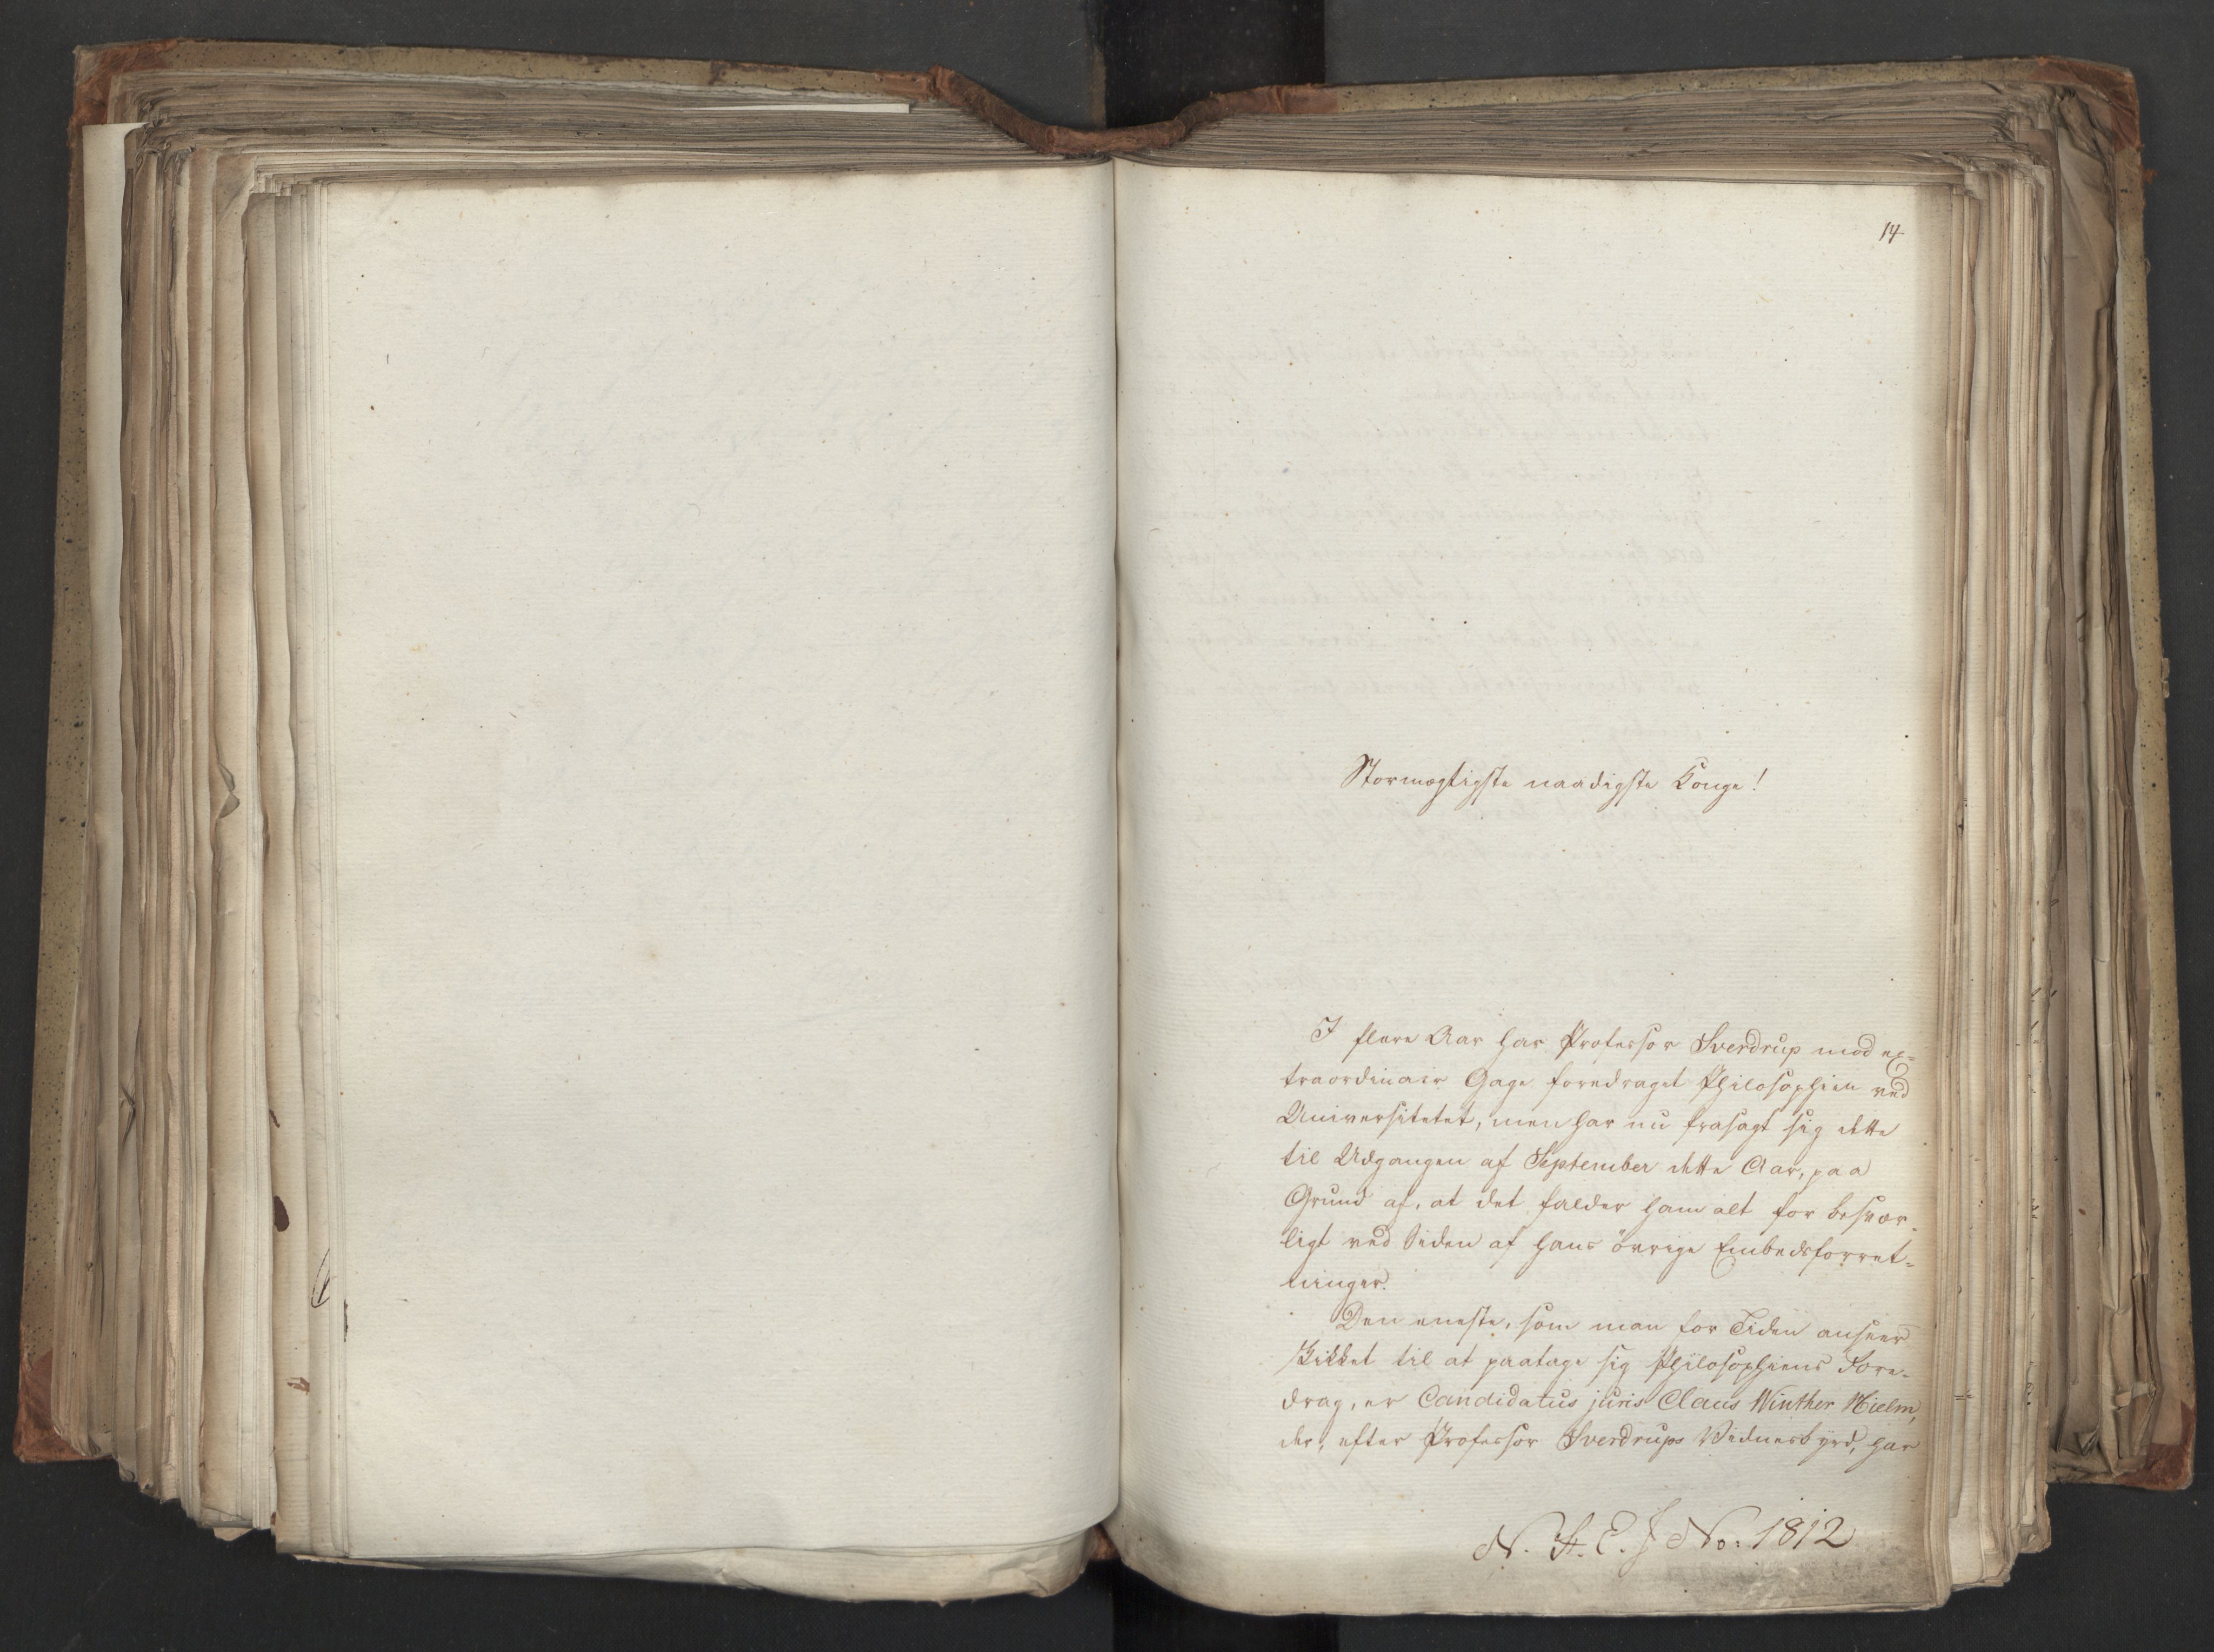 14
Stormægtigste naadigste Konge!
I flere Aar har Professor Sverdrup mod ex-
traordinair Gage foredraget Philosophien ved
Universitetet, men har nu frasagt sig dette
til Udgangen af September dette Aar, paa
Grund af, at det falder ham alt for besvær-
ligt ved Siden af hans övrige Embedsforret-
ninger.
Den eneste, som man for Tiden anseer
skikket til at paatage sig Philosophiens Fore-
drag, er Candidatus juris Claus Winther Hielm,
der, efter Professor Sverdrups Vidnesbyrd, har
N. St. E. J No: 1812